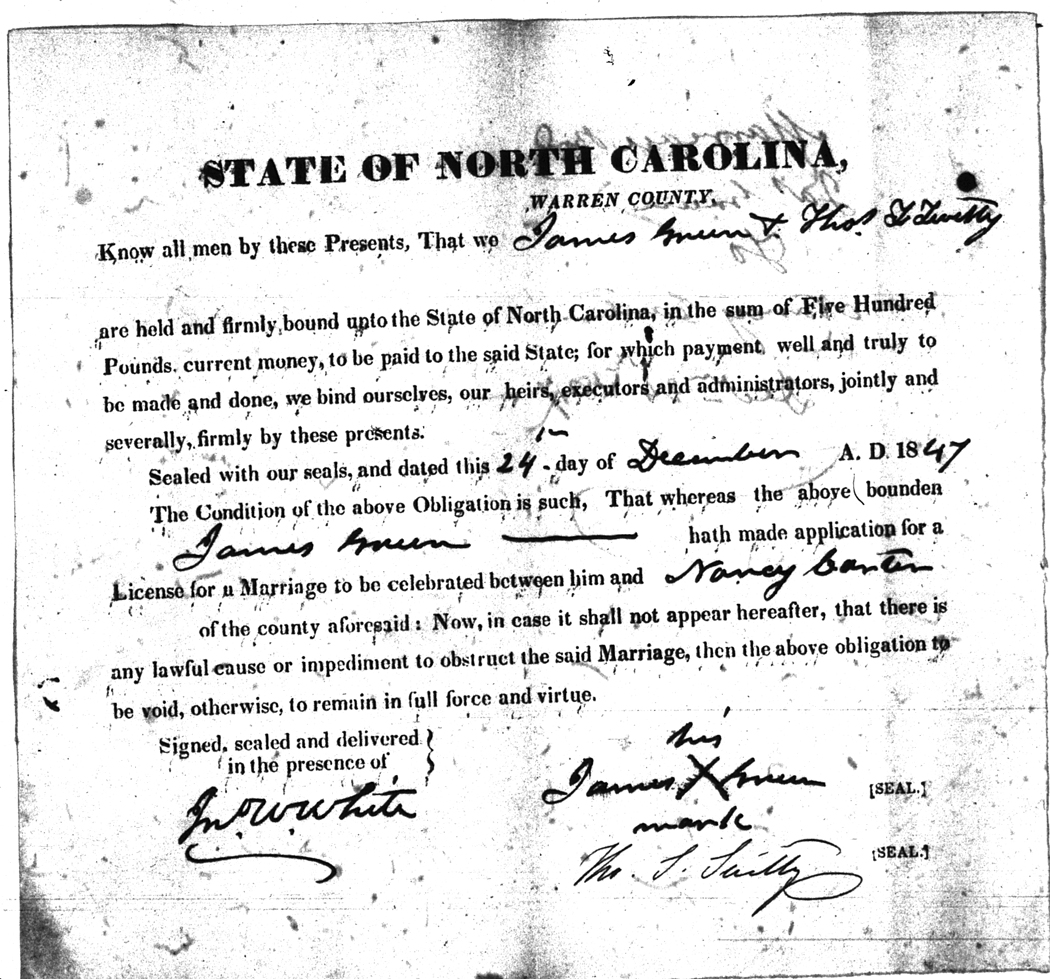 STATE OF NORTH CAROLINA,
WARREN COUNTY.
Know all men by these Presents, That we James Green & Thos. S Twitty
are held and firmly bound unto the State of North Carolina, in the sum of Five Hundred
Pounds. current money, to be paid to the said State; for which payment well and truly to
be made and done, we bind ourselves, our heirs, executors and administrators, jointly and
severally, firmly by these presents.
Sealed with our seals, and dated this 24 day of December A. D. 1847
The Condition of the above Obligation is such, That whereas the above bounden
James Green hath made application for a
License for a Marriage to be celebrated between him and Nancy Carter
of the county aforesaid: Now, in case it shall not appear hereafter, that there is
any lawful cause or impediment to obstruct the said Marriage, then the above obligation to
be void, otherwise, to remain in full force and virtue.
Signed, sealed and delivered
in the presence of
his
James X Green [SEAL.]
mark
Jno W. White
Tho. S. Twitty [SEAL.]